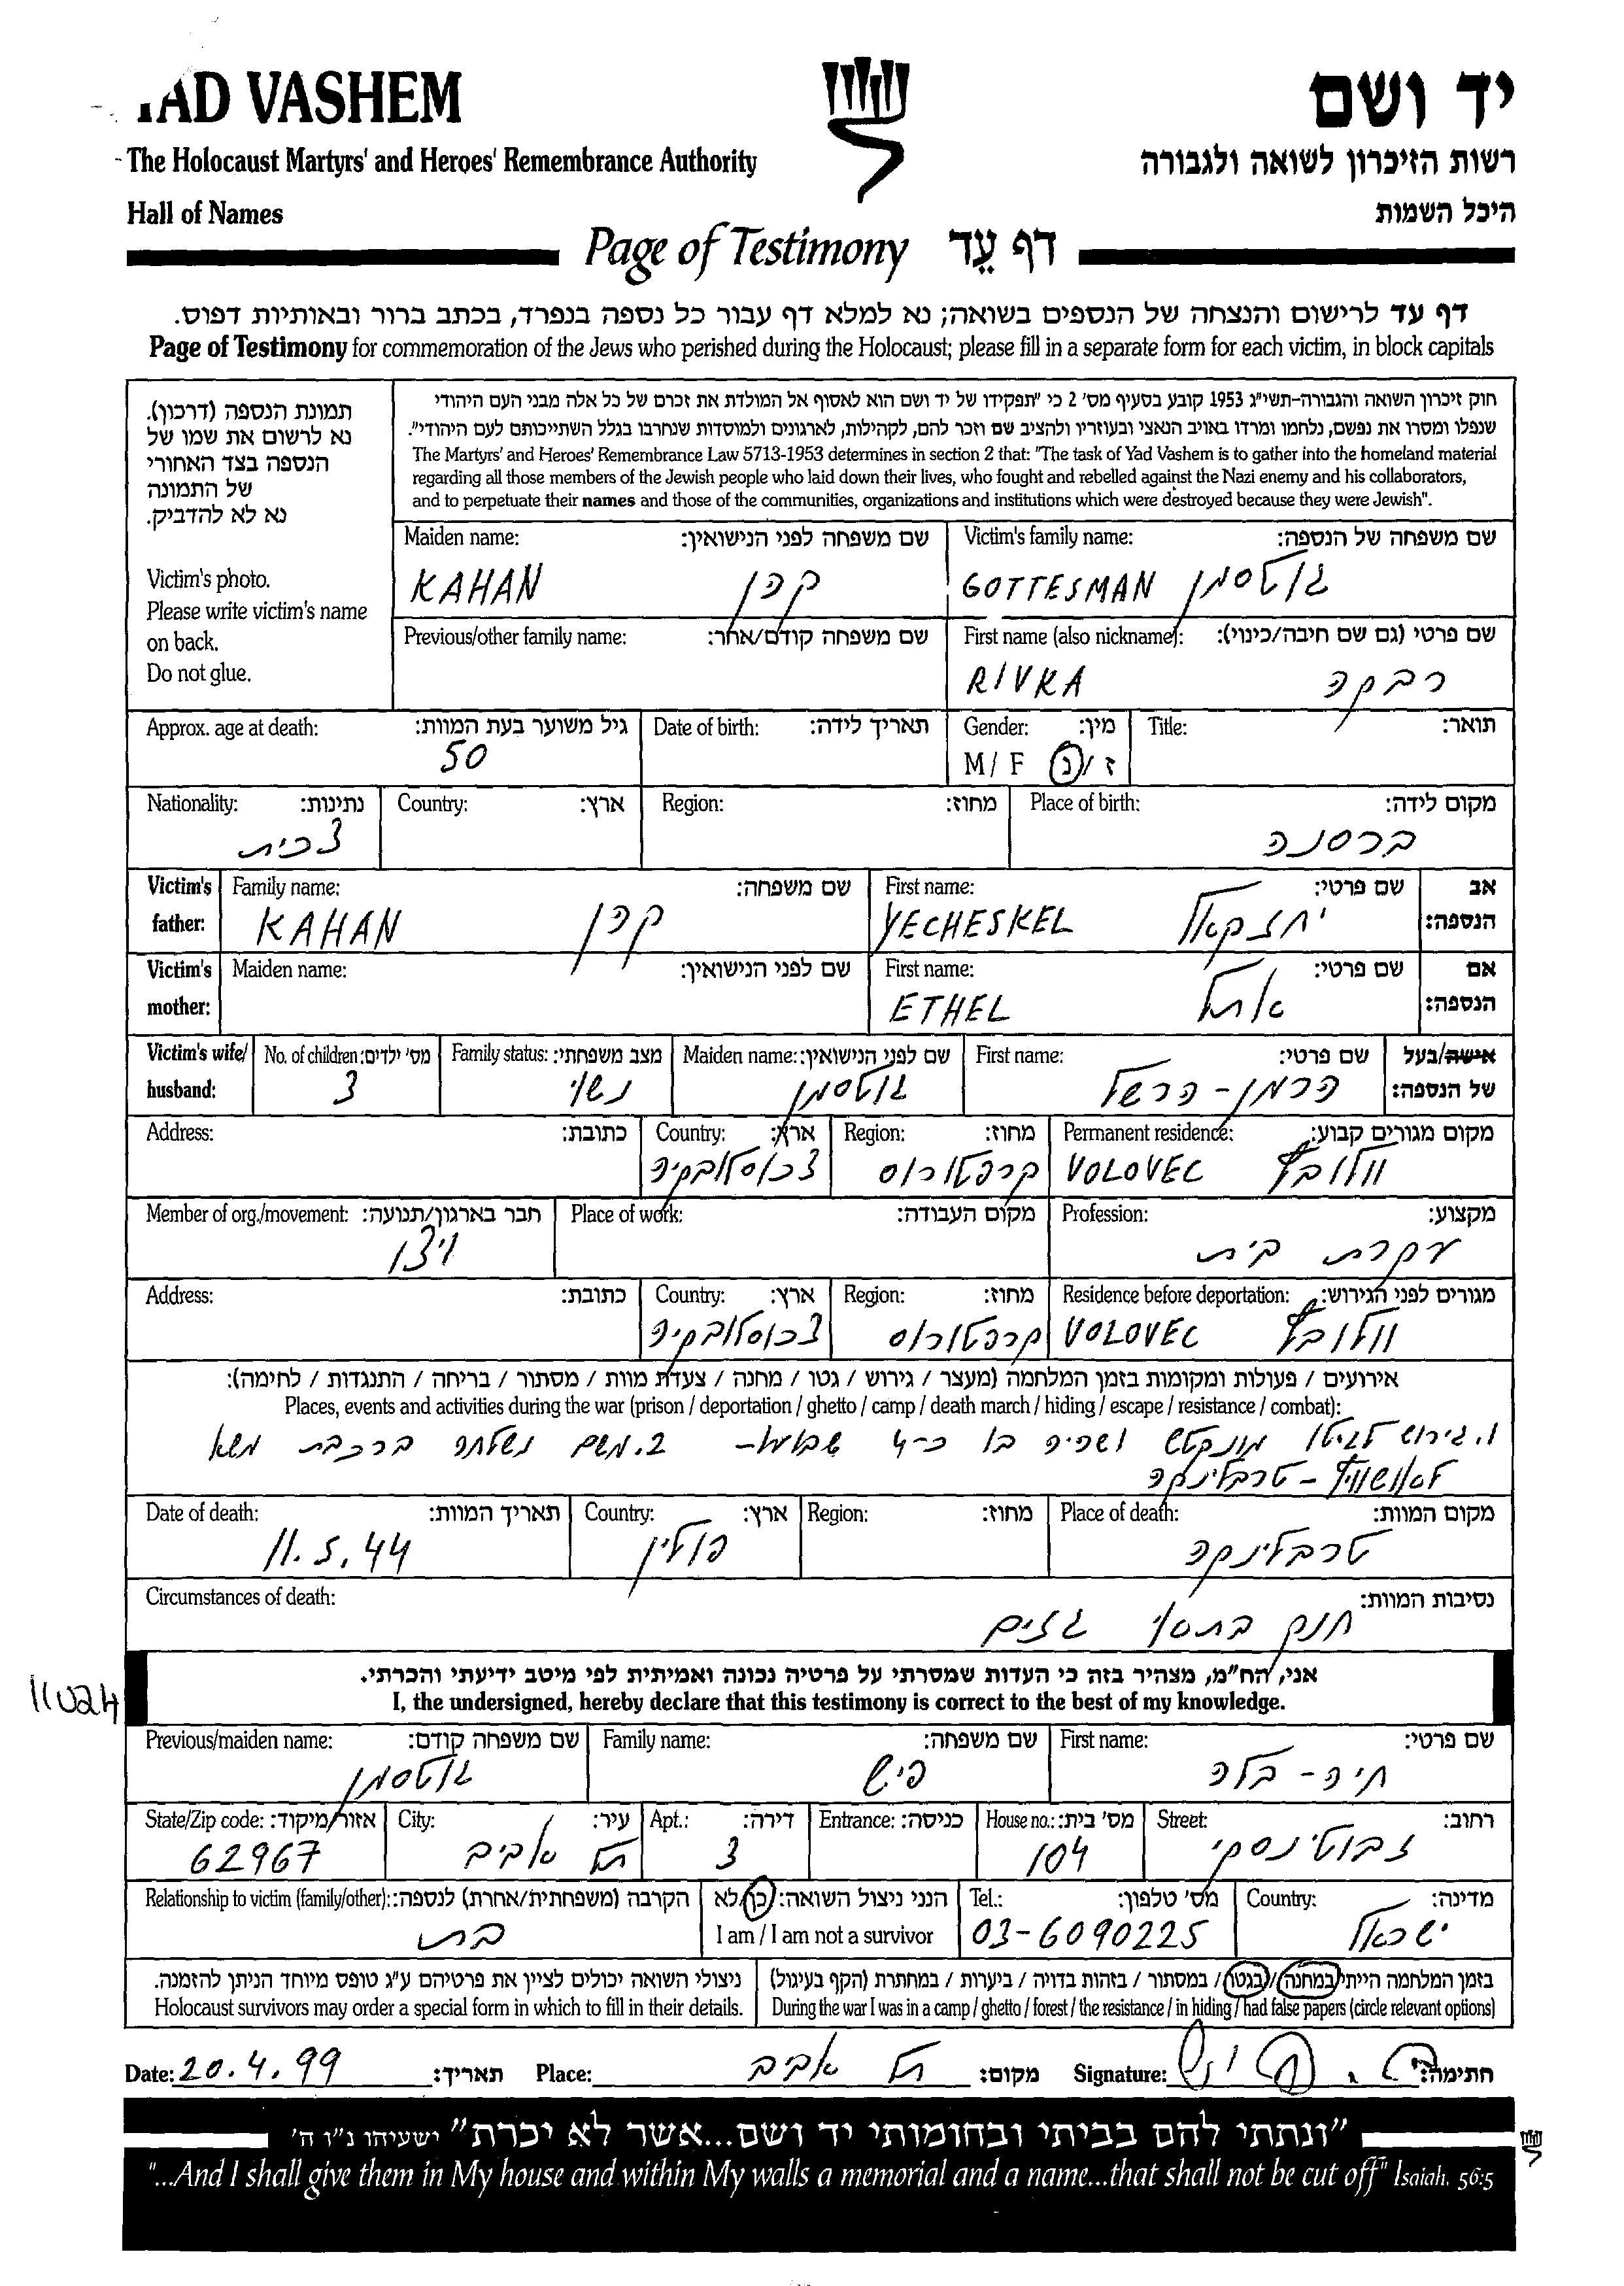 YAD VASHEM
יד ושם
The Holocaust Martyrs' and Heroes' Remembrance Authority
רשות הזיכרון לשואה ולגבורה
Hall of Names
היכל השמות
Page of Testimony דף עֵד
דף עד לרישום והנצחה של הנספים בשואה; נא למלא דף עבור כל נספה בנפרד, בכתב ברור ובאותיות דפוס.
Page of Testimony for commemoration of the Jews who perished during the Holocaust; please fill in a separate form for each victim, in block capitals
תמונת הנספה (דרכון).
נא לרשום את שמו של
הנספה בצד האחורי
של התמונה
נא לא להדביק.
Victim's photo.
Please write victim's name
on back.
Do not glue.
חוק זיכרון השואה והגבורה-תשי"ג 1953 קובע בסעיף מס' 2 כי "תפקידו של יד ושם הוא לאסוף אל המולדת את זכרם של כל אלה מבני העם היהודי
שנפלו ומסרו את נפשם, נלחמו ומרדו באויב הנאצי ובעוזריו ולהציב שם וזכר להם, לקהילות, לארגונים ולמוסדות שנחרבו בגלל השתייכותם לעם היהודי".
The Martyrs' and Heroes' Remembrance Law 5713-1953 determines in section 2 that: "The task of Yad Vashem is to gather into the homeland material
regarding all those members of the Jewish people who laid down their lives, who fought and rebelled against the Nazi enemy and his collaborators,
and to perpetuate their names and those of the communities, organizations and institutions which were destroyed because they were Jewish".
Maiden name: שם משפחה לפני הנישואין: Victim's family name: שם משפחה של הנספה:
KAHAN קהן GOTTESMAN גוטסמן
Previous/other family name: שם משפחה קודם/אחר: First name (also nickname): שם פרטי (גם שם חיבה/כינוי):
RIVKA רבקה
Approx. age at death: גיל משוער בעת המוות: Date of birth: תאריך לידה: Gender: מין: Title: תואר:
50 M / F ז / נ
Nationality: נתינות: Country: ארץ: Region: מחוז: Place of birth: מקום לידה:
צכית ברסנה
Victim's father: Family name: שם משפחה: First name: שם פרטי: אב הנספה:
KAHAN קהן YECHESKEL יחזקאל
Victim's mother: Maiden name: שם לפני הנישואין: First name: שם פרטי: אם הנספה:
ETHEL אתל
Victim's wife/ husband: No. of children: מס' ילדים: Family status: מצב משפחתי: Maiden name: שם לפני הנישואין: First name: שם פרטי: אישה/בעל של הנספה:
3 נשוי גוטסמן הרמן - הרשל
Address: כתובת: Country: ארץ: Region: מחוז: Permanent residence: מקום מגורים קבוע:
צכוסלובקיה קרפטורוס VOLOVEC וולובץ
Member of org./movement: חבר בארגון/תנועה: Place of work: מקום העבודה: Profession: מקצוע:
ויצו עקרת בית
Address: כתובת: Country: ארץ: Region: מחוז: Residence before deportation: מגורים לפני הגירוש:
צכוסלובקיה קרפטורוס VOLOVEC וולובץ
אירועים / פעולות ומקומות בזמן המלחמה (מעצר / גירוש / גטו / מחנה / צעדת מוות / מסתור / בריחה / התנגדות / לחימה):
Places, events and activities during the war (prison / deportation / ghetto / camp / death march / hiding / escape / resistance / combat):
1. גירוש לגיטו מונקטש ושהיה בו כ-4 שבועו- 2. משם נשלחה ברכבת משא
לאושוויץ - טרבלינקה
Date of death: תאריך המוות: Country: ארץ: Region: מחוז: Place of death: מקום המוות:
11.5.44 פולין טרבלינקה
Circumstances of death: נסיבות המוות:
חנק בתאי גזים
אני, הח"מ, מצהיר בזה כי העדות שמסרתי על פרטיה נכונה ואמיתית לפי מיטב ידיעתי והכרתי.
I, the undersigned, hereby declare that this testimony is correct to the best of my knowledge.
Previous/maiden name: שם משפחה קודם: Family name: שם משפחה: First name: שם פרטי:
גוטסמן פיש חיה - בלה
State/Zip code: אזור/מיקוד: City: עיר: Apt.: דירה: Entrance: כניסה: House no.: מס' בית: Street: רחוב:
62967 תל אביב 3 104 זבוטינסקי
Relationship to victim (family/other): הקרבה (משפחתית/אחרת) לנספה: הנני ניצול השואה: כן/לא Tel.: מס' טלפון: Country: מדינה:
בת I am / I am not a survivor 03-6090225 ישראל
ניצולי השואה יכולים לציין את פרטיהם ע"ג טופס מיוחד הניתן להזמנה. בזמן המלחמה הייתי במחנה/בגטו/ במסתור / בזהות בדויה / ביערות / במחתרת (הקף בעיגול)
Holocaust survivors may order a special form in which to fill in their details. During the war I was in a camp / ghetto / forest / the resistance / in hiding / had false papers (circle relevant options)
Date: 20.4.99 תאריך: Place: תל אביב מקום: Signature: חתימה:
"ונתתי להם בביתי ובחומותי יד ושם...אשר לא יכרת" ישעיהו נ"ו ה'
"...And I shall give them in My house and within My walls a memorial and a name...that shall not be cut off" Isaiah, 56:5